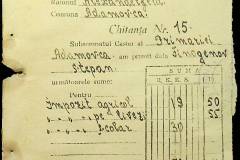 Comuna Adamovca.
Chitanța Nr. 15.
Subsemnatul Casier al Primăriei
Adamovca am primit dela
Stepan
SUMA
următoarele sume:
Pentru
Impozit agricol 19 50
" " pe livezi 55
" " școlar 30